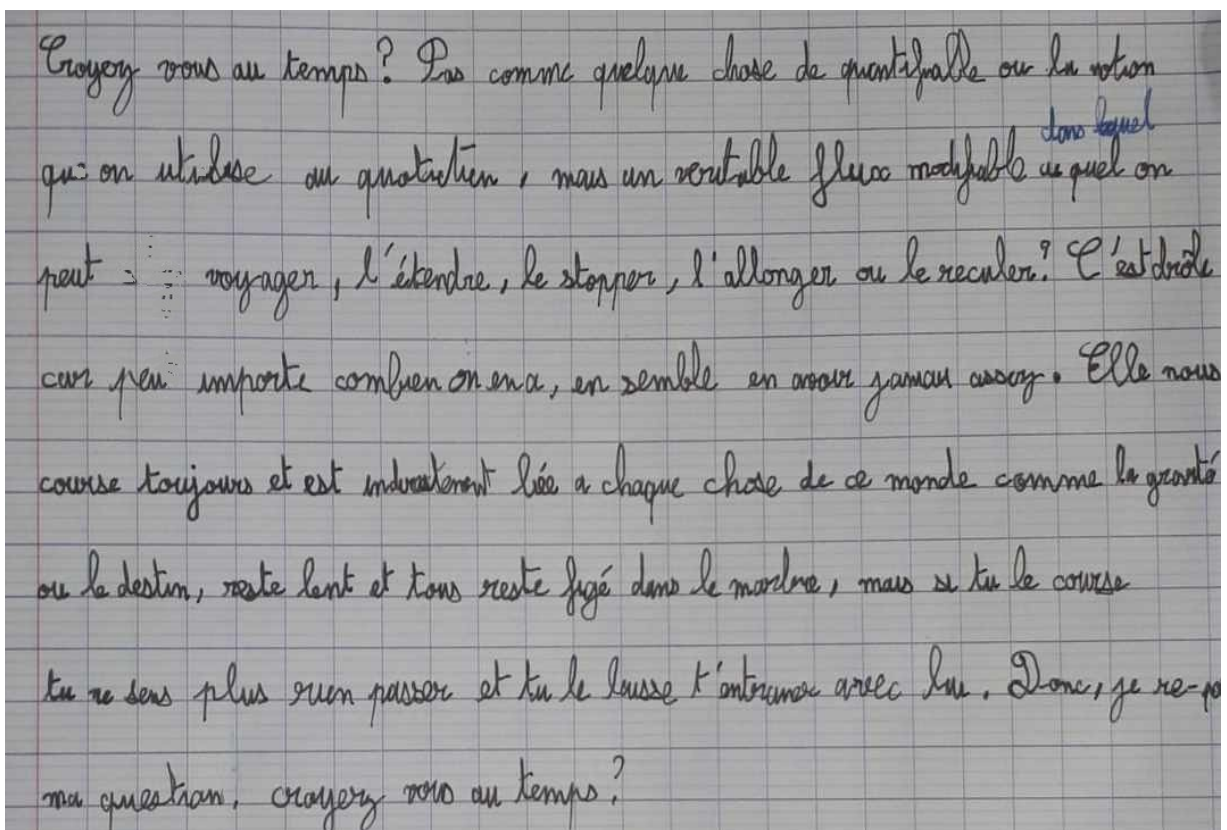 Croyez vous au temps? Pas comme quelque chose de quantifiable ou la notion
qu'on utilise au quotidien, mais un veritable flux modifiable dans lequel on
peut voyager, l'étendre, le stopper, l'allonger ou le reculer? C'est drôle
car peu importe combien on en a, on semble en avoir jamais assez. Elle nous
course toujours et est liée a chaque chose de ce monde comme la gravité
ou le destin, reste lent et tous reste figé dans le marbre, mais si tu le course
tu ne sens plus rien passer et tu le laisse t'entrainer avec lui. Donc, je re-po
ma question, croyez vous au temps?